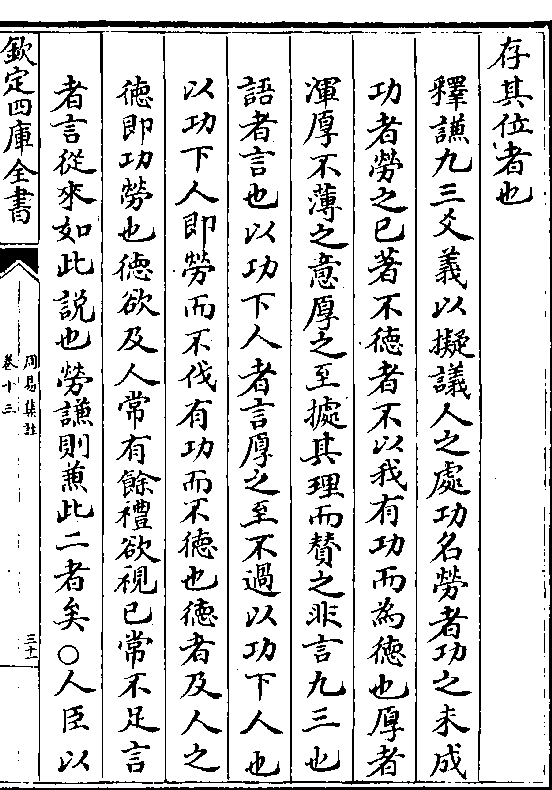 存其位者也
釋謙九三爻義以擬議人之處功名勞者功之未成
功者勞之已著不德者不以我有功而為德也厚者
渾厚不薄之意厚之至據其理而賛之非言九三也
語者言也以功下人者言厚之至不過以功下人也
以功下人即勞而不伐有功而不德也德者及人之
德即功勞也德欲及人常有餘禮欲視已常不足言
者言從來如此說也勞謙則兼此二者矣○人臣以
欽定四庫全書
周易集註
卷十三
三十一